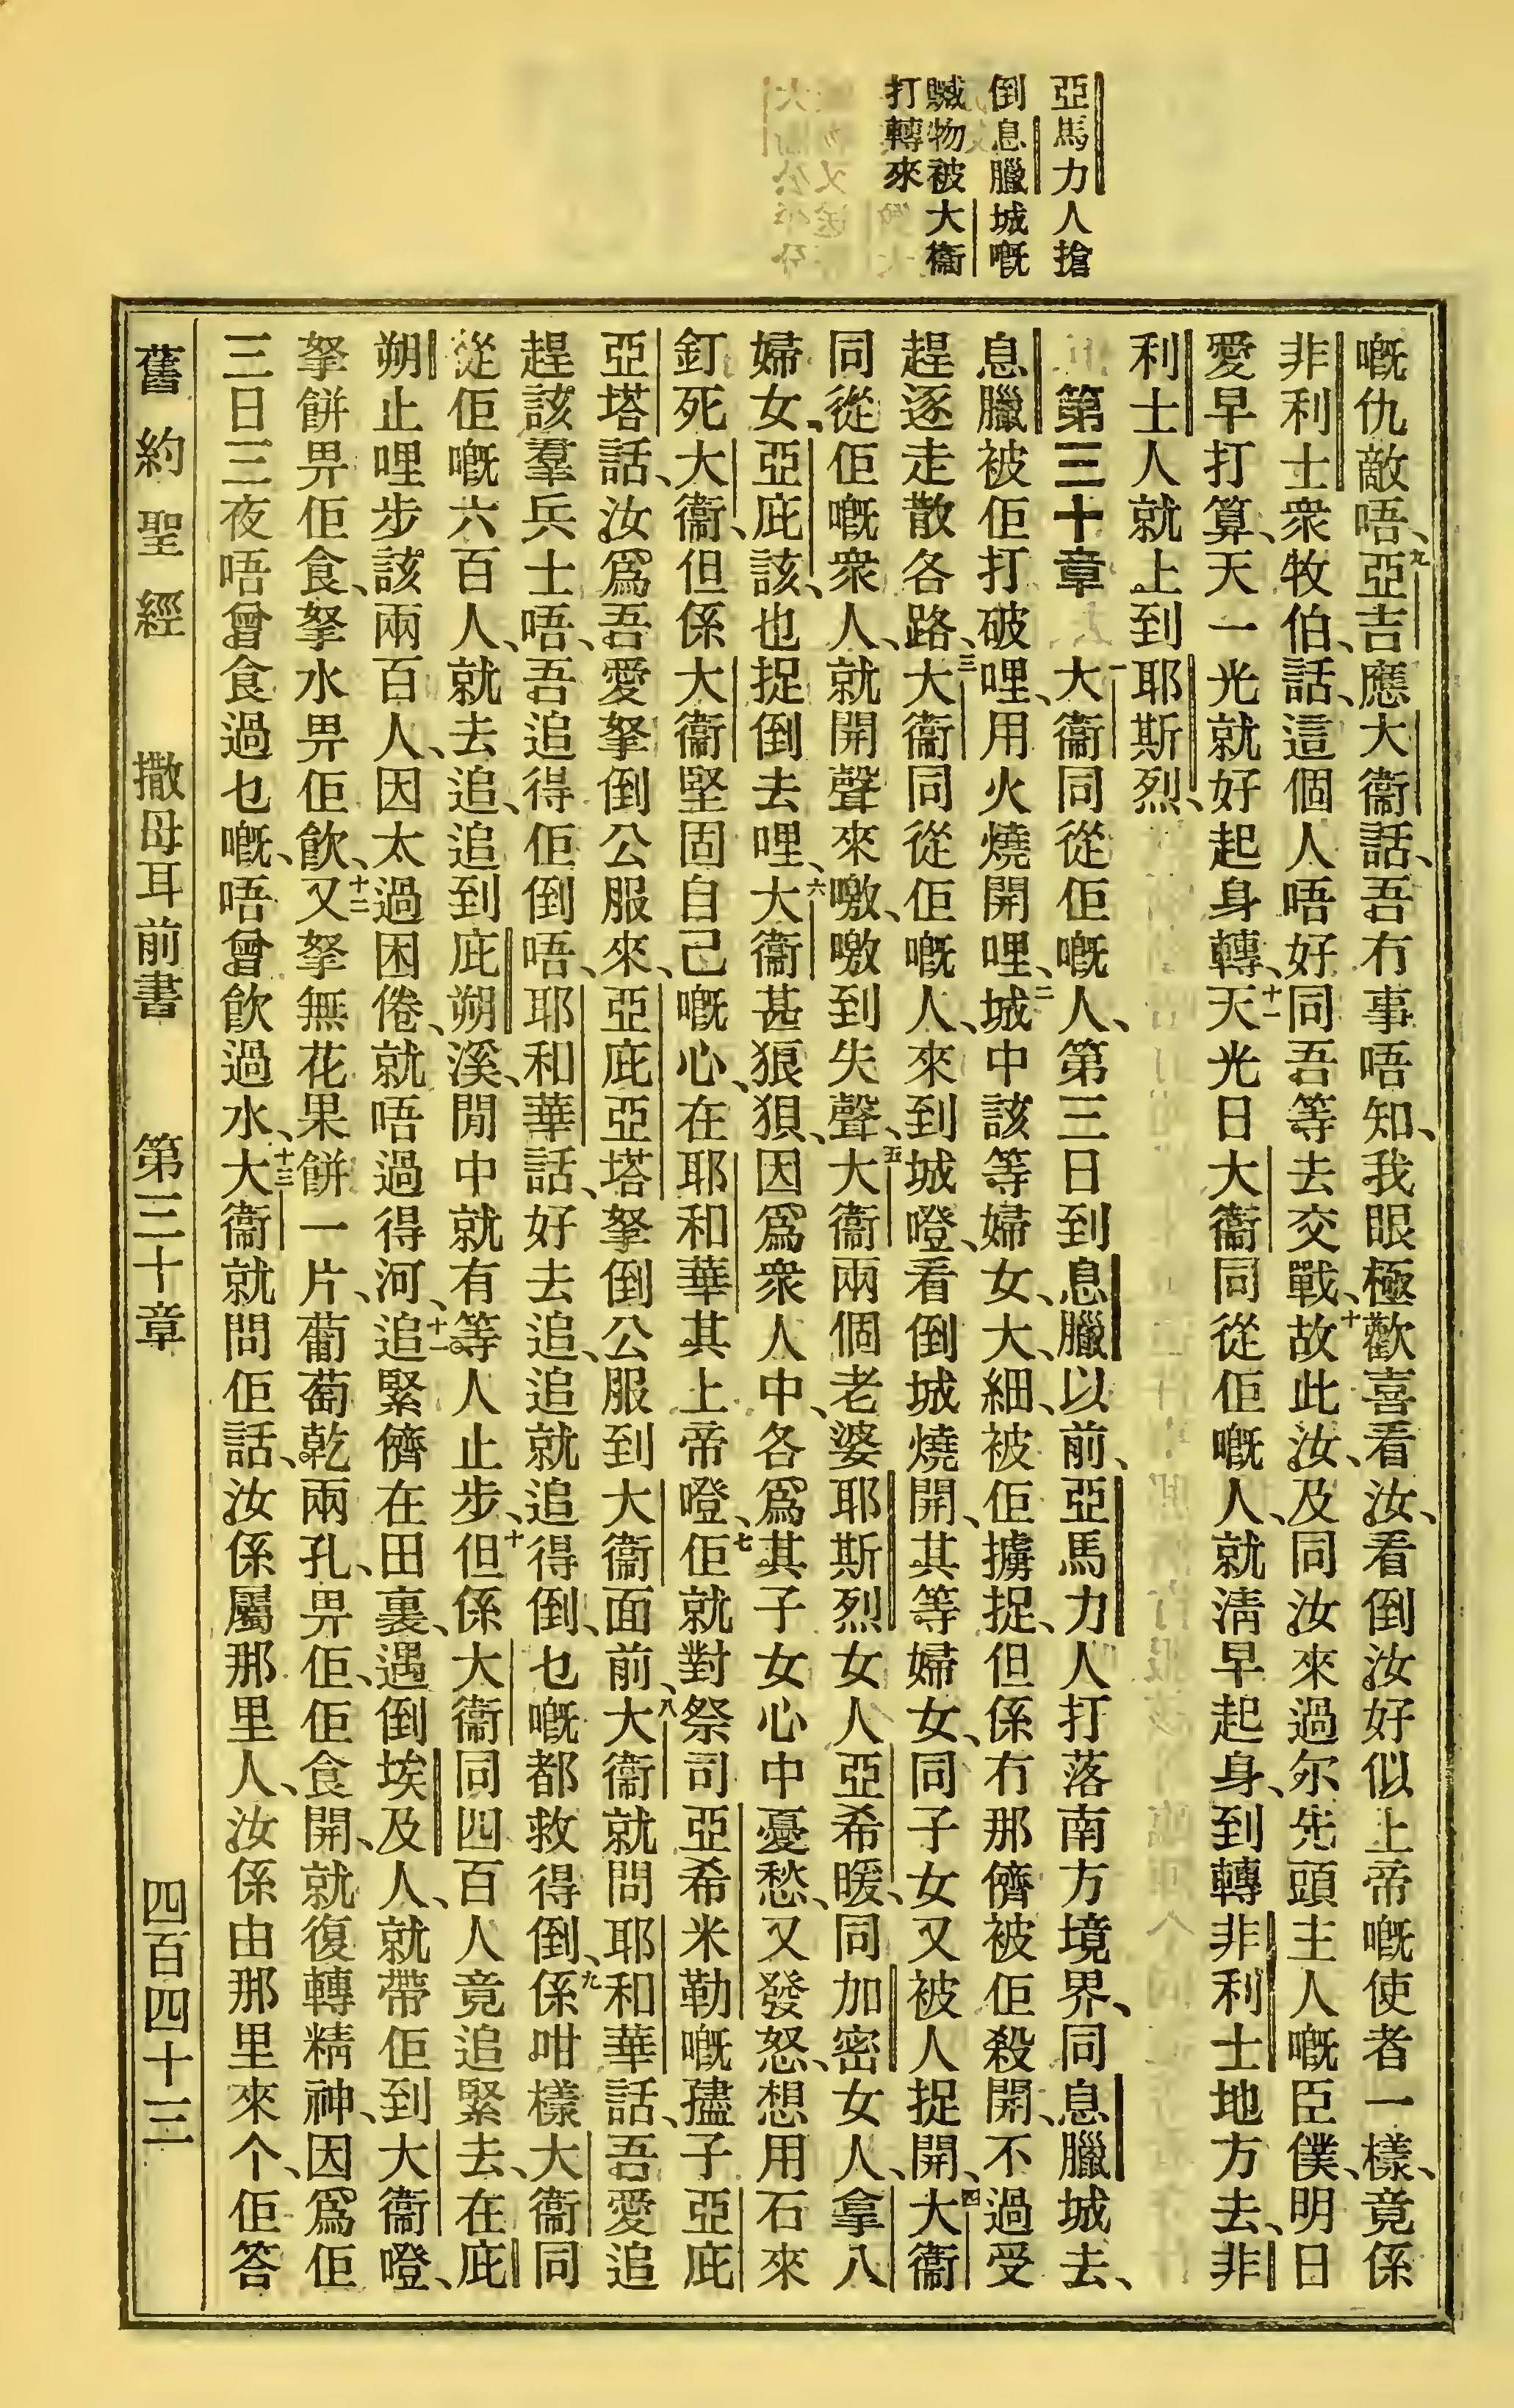 亞馬力人搶
倒息臘城嘅
贓物被大衞
打轉來
嘅仇敵唔、九亞吉應大衞話、吾冇事唔知、我眼極歡喜看汝、看倒汝好似上帝嘅使者一樣、竟係
非利士衆牧伯、話、這個人唔好同吾等去交戰、十故此汝、及同汝來過尔先頭主人嘅臣僕、明日
愛早打算、天一光就好起身轉、十一天光日大衞同從佢嘅人、就淸早起身、到轉非利士地方去、非
利士人就上到耶斯烈、
第三十章 一大衞同從佢嘅人、第三日到息臘以前、亞馬力人打落南方境界、同息臘城去、
息臘被佢打破哩、用火燒開哩、二城中該等婦女、大、細、被佢擄捉、但係冇那儕被佢殺開、不過受
趕逐走散各路、三大衞同從佢嘅人、來到城嶝、看倒城燒開、其等婦女、同子女又被人捉開、四大衞
同從佢嘅衆人、就開聲來噭、噭到失聲、五大衞兩個老婆耶斯烈女人亞希暖、同加密女人、拿八
婦女、亞庇該、也捉倒去哩、六大衞甚狼狽、因爲衆人中、各爲其子女心中憂愁、又發怒、想用石來
釘死大衞、但係大衞堅固自己嘅心、在耶和華其上帝嶝、七佢就對祭司亞希米勒嘅孻子亞庇
亞塔話、汝爲吾愛拏倒公服來、亞庇亞塔拏倒公服到大衞面前、八大衞就問耶和華話、吾愛追
趕該羣兵士唔、吾追得佢倒唔、耶和華話、好去追、追就追得倒、乜嘅都救得倒、九係咁樣大衞同
從佢嘅六百人、就去追、追到庇朔溪、閒中就有等人止步、十但係大衞同四百人竟追緊去、在庇
朔止哩步該兩百人、因太過困倦、就唔過得河、十一追緊儕在田裏、遇倒埃及人、就帶佢到大衞嶝、
拏餅畀佢食、拏水畀佢飮、十二又拏無花果餅一片、葡萄乾兩孔、畀佢、佢食開、就復轉精神、因爲佢
三日三夜唔曾食過乜嘅、唔曾飮過水、十三大衞就問佢話、汝係屬那里人、汝係由那里來个、佢答
舊約聖經 撒母耳前書 第三十章 四百四十三